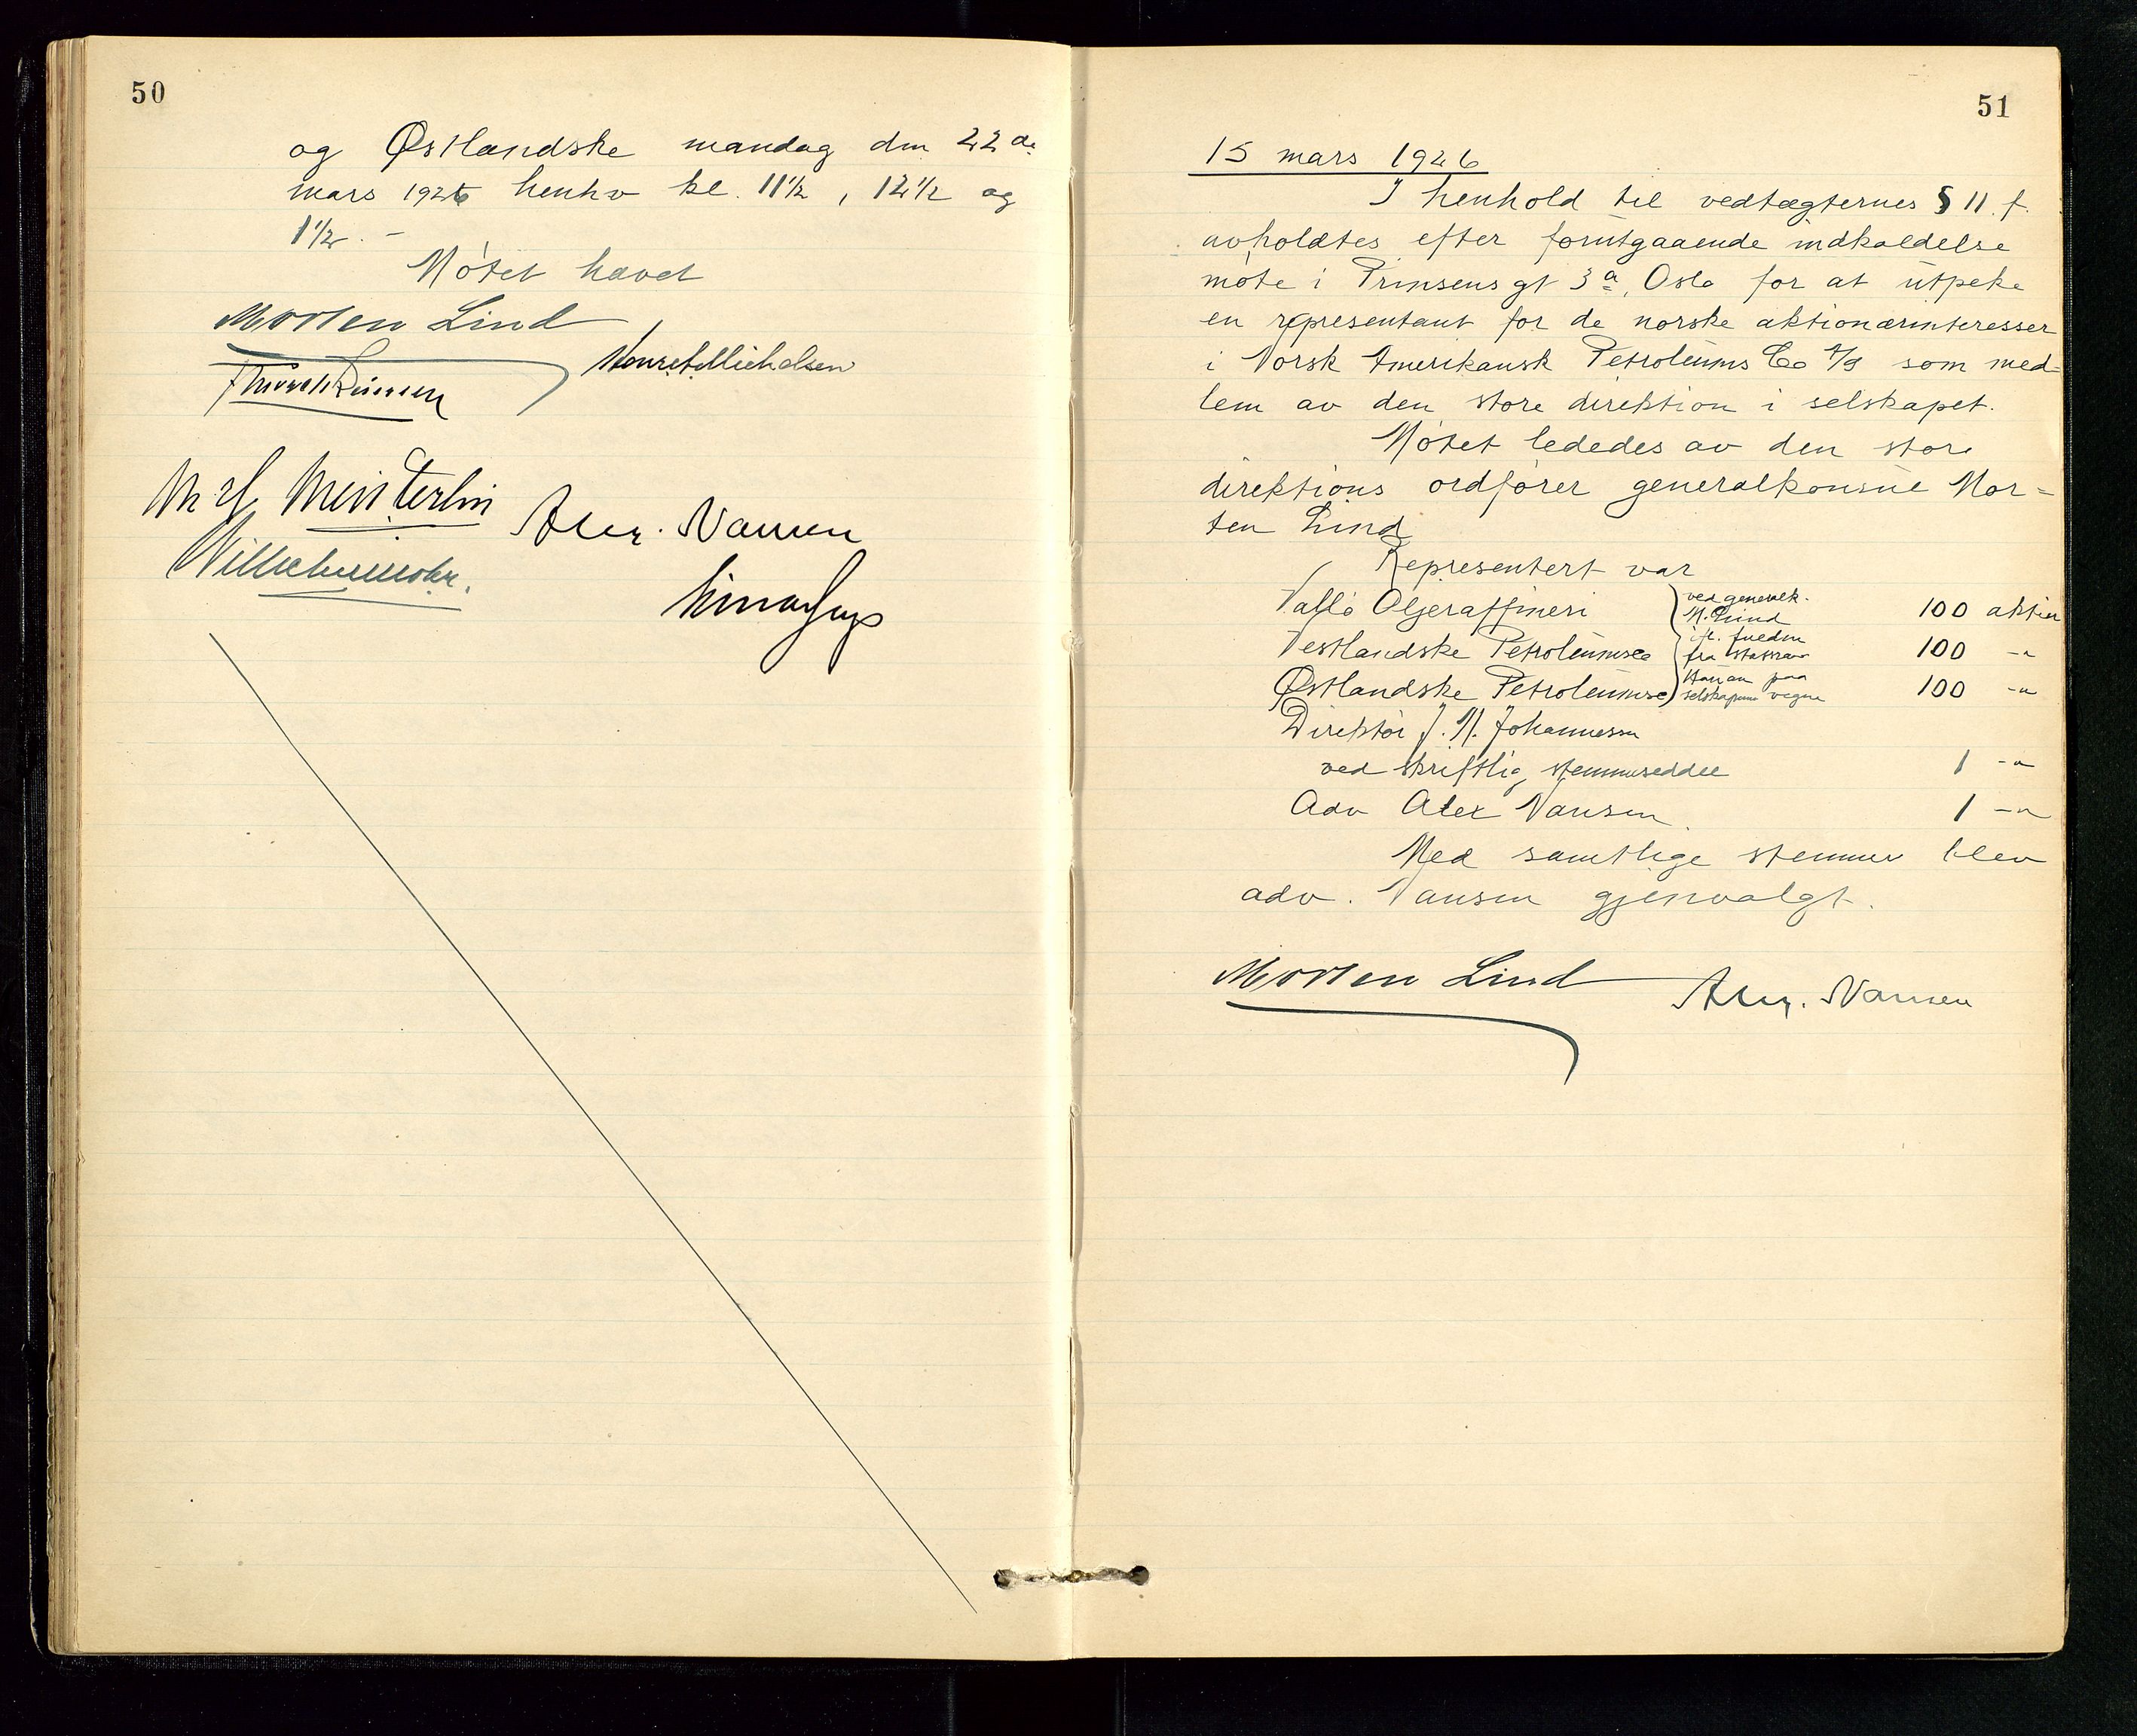 50
og Østlandske mandag den 22 ds
mars 1926 henhv kl. 11½, 12½ og
1½. –
Møtet hævet
Morten Lind
Alex. Nansen
51
15 mars 1926
I henhold til vedtægternes § 11. f.
avholdtes efter forutgaaende indkaldelse
møte i Prinsens gt 3a, Oslo for at utpeke
en representant for de norske aktionærinteresser
i Norsk Amerikansk Petroleums Co A/S som med=
lem av den store direktion i selskapet.
Møtet lededes av den store
direktions ordfører generalkonsul Mor=
ten Lind
Representert var
Vallø Oljeraffineri ved generalk. M. Lind 100 aktier
Vestlandske Petroleumsco ifl. fuldm fra 100 -"-
Østlandske Petroleumsco paa selskapens vegne 100 -"-
Direktør J. M. Johannessen
ved skriftlig stemmeseddel 1 -"-
Adv Alex Nansen. 1 -"-
Med samtlige stemmer blev
adv. Nansen gjenvalgt.
Morten Lind Alex. Nansen